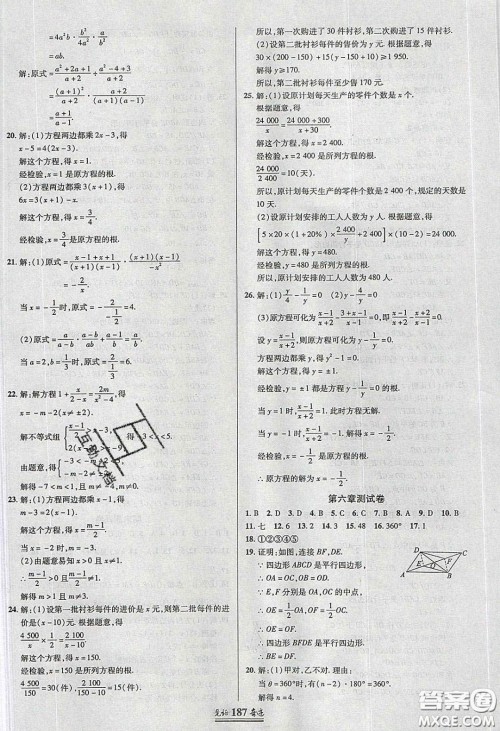 =4a²b·b²/4·b/a³
=ab.
解:原式=a²+2a+1/a+2÷a²-4+3/a+2
=(a+1)²/a+2·a+2/(a+1)(a-1)
=a+1/a-1.
20. 解:(1)方程两边都乘2x-3,得
x-5=4(2x-3).
解这个方程,得x=1.
经检验,x=1是原方程的根.
(2)方程两边都乘3(x+1),得
6x=3(x+1)-x.
解这个方程,得x=3/4.
经检验,x=3/4是原方程的根.
21. 解:(1)原式=x-1+x+1/(x+1)(x-1)·(x+1)(x-1)/-x²
=-2/x.
当x=-1/2时,原式=-2/-1/2=4.
(2)原式=a/a-b·a-b/a+b=a/a+b.
当a=2,b=1/3时,原式=2/2+1/3=6/7.
22. 解:解方程1+x/x-2=2m/x²-4,得
x=-m-2(x≠±2).
由题意,得{-m-2≠-2,
解得m<-1且m≠0.
23. 解:(1)方程两边都乘2x,得
解这个方程,得x=m-1/2.
(2)由题意易知x>0且x≠1.
∴m-1/2>0且m-1/2≠1.
∴m>1且m≠3.
24. 解:(1)设第一批衬衫每件的进价是x元,则第二批每件的进
价是(x-10)元. 根据题意,得
4 500/x×1/2=2 100/x-10.
解得x=150.
经检验,x=150是所列方程的根.
4 500/150=30(件),2 100/150-10=15(件).
所以,第一次购进了30件衬衫,第二次购进了15件衬衫.
(2)设第二批衬衫每件的售价为y元. 根据题意,得
30×(200-150)+15(y-150+10)≥1 950.
解得y≥170.
所以,第二批衬衫每件至少售170元.
25. 解:(1)设原计划每天生产的零件个数是x个.
根据题意,得
24 000/x=24 000+300/x+30.
解得x=2 400.
经检验,x=2 400是所列方程的根.
24 000/2 400=10(天).
所以,原计划每天生产的零件个数是2 400个,规定的天数是
10天.
(2)设原计划安排的工人人数为y人. 根据题意,得
[5×20×(1+20%)×2 400/y+2 400]×(10-2)=24 000.
解得y=480.
经检验,y=480是所列方程的根.
所以,原计划安排的工人人数为480人.
26. 解:(1)y/4-1/y=0 (2)y-4/y=0
(3)原方程可化为x-1/x+2-3+x-1/x-1=0,即x-1/x+2-x+2/x-1=0.
设x-1/x+2=y,则原方程可化为y-1/y=0.
方程两边都乘y,得y²-1=0.
解得y=±1.
经检验,y=±1都是方程y-1/y=0的根.
当y=1时,x-1/x+2=1,此方程无解.
当y=-1时,x-1/x+2=-1,解得x=-1/2.
经检验,x=-1/2是原方程的根.
∴原方程的根为x=-1/2.
第六章测试卷
1. B 2. D 3. D 4. B 5. D 6. C 7. D 8. D 9. C 10. B
11. 七 12. 6 13. 2 14. 3 15. 48 16. 360° 17. 1
18. ①②③④⑤
19. 证明:如图,连接BF,DE.
∵四边形ABCD是平行四边形,
∴OA=OC,OB=OD.
∵E,F分别是OA,OC的中点,
∴OE=1/2OA,OF=1/2OC.
∴OE=OF.
∴四边形BFDE是平行四边形.
∴BE=DF.
20. 解:(1)甲对,乙不对. 理由如下:
当θ=360°时,有(n-2)×180°=360°,
解得n=4.
187
答案圈
MXQE.COM